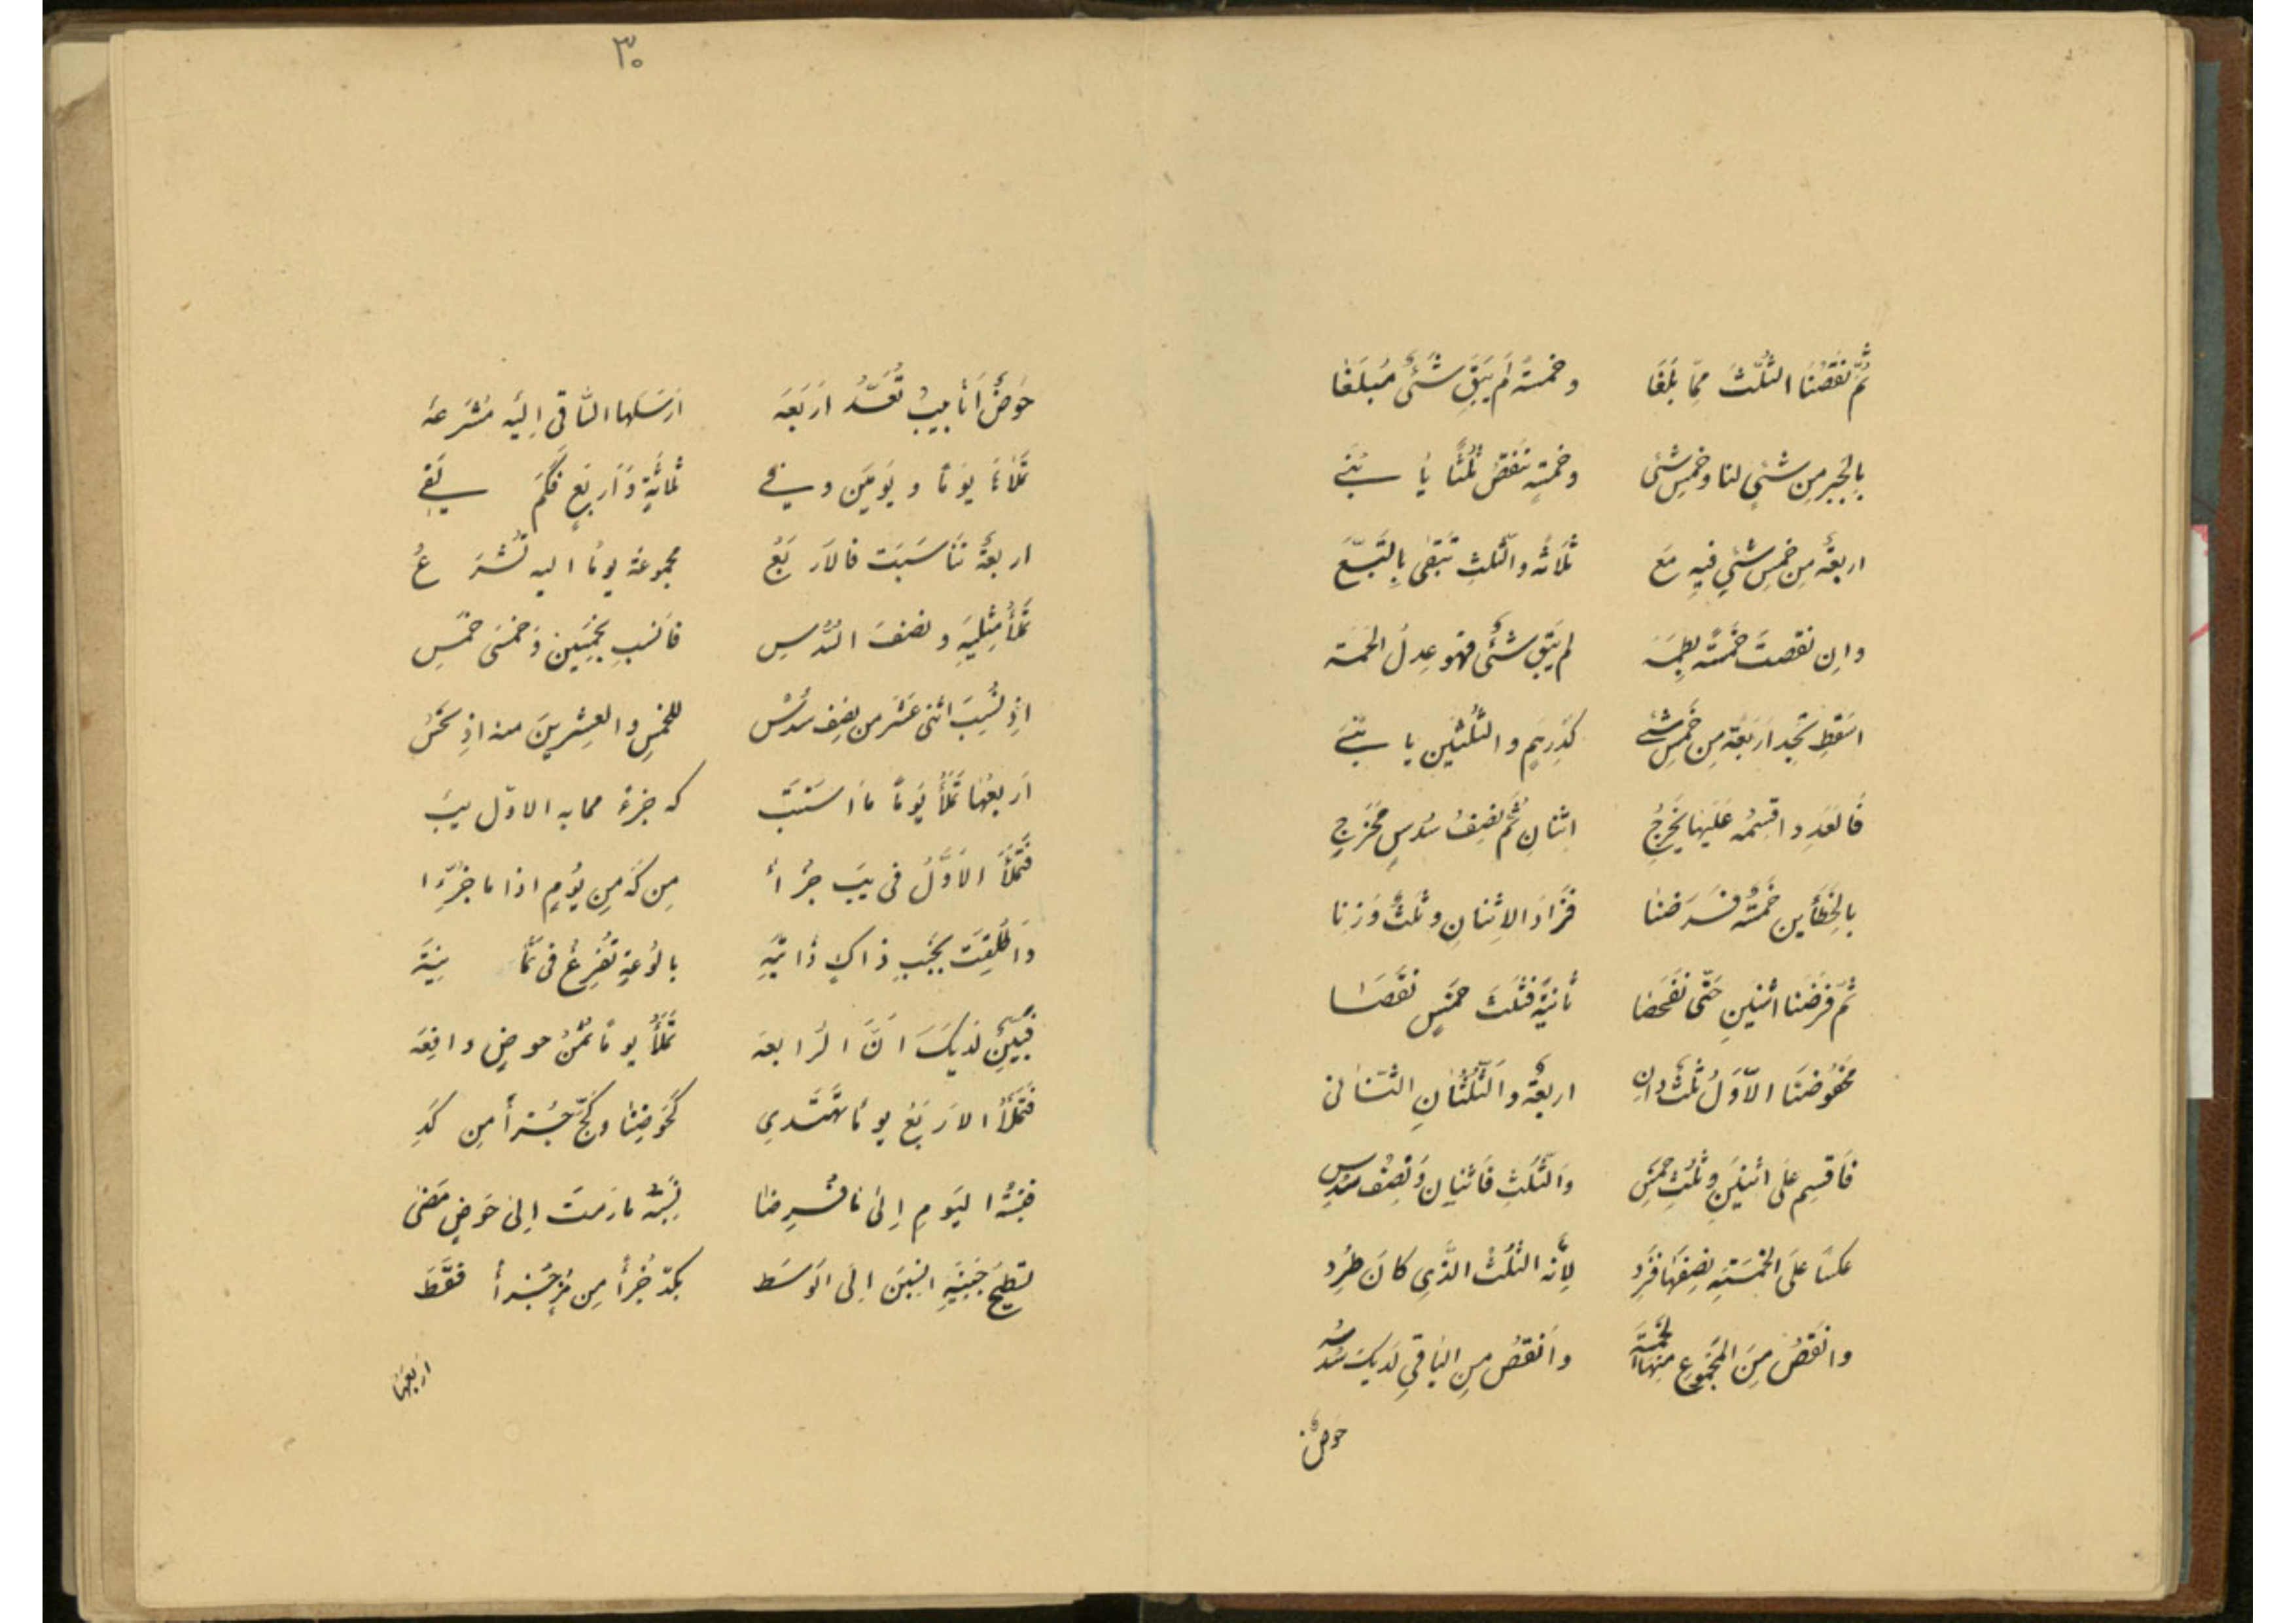 ثُمَّ نَقَصْنَا الثُّلُثَ مِمّا بَلَغَا وخمسةً لَم يَبقَ شَئٌ مُبلَغا
بِالجبرمِن شئيٍ لنا وخمسِ شئی وخمسةٍ تنقصُ ثلثًا يا بُنَے
اربعةٌ مِن خمسِ شئيٍ فيهِ مَعَ ثلاثةٌ والثُّلثِ تَبقٰى بِالتَبَّعَ
وانِ نقصتَ خمسةً لم يَبقِ شئٌ فهو عِدلُ الخمسَة
اسقِط تجِد اَربعةً مِن خُمسِ شئے كَدِرهمٍ والثُّلثَينِ يا بُنَےَّ
فَالعَدَدِ اقسِمه عَلَيها يَخرُجِ اِثنانِ ثُمَّ نِصفُ سُدسٍ مَخرَجِ
بالخطَأينِ خمسةً فَرَضنا فَزَادَ الاِثنانِ وثُلثٌ وَزنا
ثُمّ فَرَضنا اثنينِ حَتّى نفحَصا ثانيةً فثُلثَ خمسٍ نقَصَا
محفُوضنَا الاَوّلُ ثلثٌ وانِ اربعةٌ والثُّلُثَانِ الثَّانی
فَاقسِم عَلَى اثنينِ وثُلثِ خمسِ وَالثُّلثِ فَاثنانِ وَنِصفُ سُدسِ
عكسًا عَلَى الخمسَةِ نِصفَها فَزِد لِأنّه الثُّلثُ الذَّي كانَ طُرِد
وانقُصُ مِنَ المجَموعِ منها الخمسَة وَانقُصُ مِن الباقي لَديكَ سُدسُه
حَوضٌ
٣٠
حَوضٌ اَنابيبُ تُعَدُّ اَربَعَه اَرسَلها السَّاقی اِليَه مُشرَعَه
تَملَأهُ يومًا و يَومَين و فے ثمانيةٍ وَاَربَعٍ فَكَم يَفے
اربعةٌ تَناسَبَت فالاَربَعُ مجموعةٌ يومًا اليه تُشرَعُ
تملَأ مِثليَهِ ونصفَ السُّدسِ فَانسُب بِخمسَينِ وَخمسَی خُمسِ
اذِ نُسِبَ اثنی عَشَر من نِصف سُدُس للخمسِ والعِشرينَ منه اذِ
اَربعُها تَملَأُ يَومًا مااَستَنَبَّ كه جزءً ممابه الاوّل يَب
فتملَأُ الاَوَّلُ فی يَب جُزأً مِن كَه مِن يَومٍ اذا ما جُزِّءا
وَاُطلِقَت بِجَنبِ ذاكَ ذاتيَهِ بالوُعةٍ تُفرِغُ فی ثَمَانيَة
فبَيِّن لَدَيكَ اَنَّ الرابعه تَملَأُ يومًا ثمنُ حوضٍ دافِعَه
فَتملَأُ الاَربَعُ يومًا تَهتَدي كَحَوضِنا وكَجّ جُزأً مِن كَدِ
فنِسبَةُ اليَومِ اِلَى مافُرِضا نِسبَة مارُمتَ اِلى حَوضٍ مَضٰى
اِلَی الوَسَط بكدّ جُزأً مِن مُز جُزأً فقَط
اربعُها